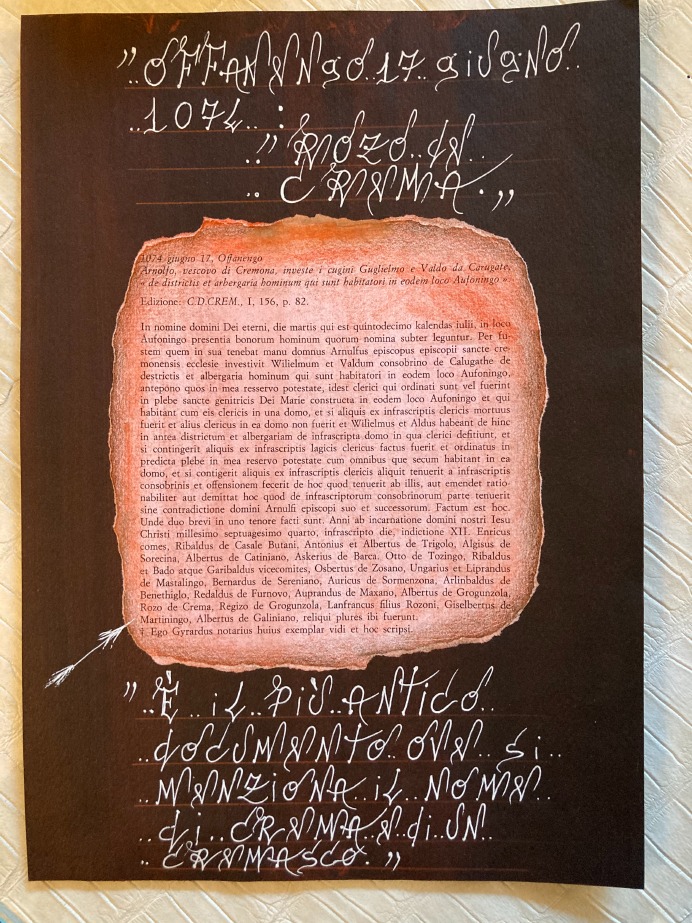 "..OFFANENGO..17..giUgNO..
..1074..:
.." ROZO..dE..
..CREMA.."
1074 giugno 17, Offanengo
Arnolfo, vescovo di Cremona, investe i cugini Guglielmo e Valdo da Carugate,
« de districtis et arbergaria hominum qui sunt habitatori in eodem loco Aufoningo ».
Edizione: C.D.CREM., I, 156, p. 82.
In nomine domini Dei eterni, die martis qui est quintodecimo kalendas iulii, in loco
Aufoningo presentia bonorum hominum quorum nomina subter leguntur. Per fu-
stem quem in sua tenebat manu domnus Arnulfus episcopus episcopii sancte cre-
monensis ecclesie investivit Wilielmum et Valdum consobrino de Calugathe de
destrictis et albergaria hominum qui sunt habitatori in eodem loco Aufoningo,
antepono quos in mea resservo potestate, idest clerici qui ordinati sunt vel fuerint
in plebe sancte genitricis Dei Marie constructa in eodem loco Aufoningo et qui
habitant cum eis clericis in una domo, et si aliquis ex infrascriptis clericis mortuus
fuerit et alius clericus in ea domo non fuerit et Wilielmus et Aldus habeant de hinc
in antea districtum et albergariam de infrascripta domo in qua clerici defitiunt, et
si contingerit aliquis ex infrascriptis lagicis clericus factus fuerit et ordinatus in
predicta plebe in mea reservo potestate cum omnibus que secum habitant in ea
domo, et si contigerit aliquis ex infrascriptis clericis aliquit tenuerit a infrascriptis
consobrinis et offensionem fecerit de hoc quod tenuerit ab illis, aut emendet ratio-
nabiliter aut demittat hoc quod de infrascriptorum consobrinorum parte tenuerit
sine contradictione domini Arnulfi episcopi suo et successorum. Factum est hoc.
Unde duo brevi in uno tenore facti sunt. Anni ab incarnatione domini nostri Iesu
Christi millesimo septuagesimo quarto, infrascripto die, indictione XII. Enricus
comes, Ribaldus de Casale Butani, Antonius et Albertus de Trigolo, Algisus de
Sorecina, Albertus de Catiniano, Askerius de Barca. Otto de Tozingo, Ribaldus
et Bado atque Garibaldus vicecomites, Osbertus de Zosano, Ungarius et Liprandus
de Mastalingo, Bernardus de Sereniano, Auricus de Sormenzona, Arlinbaldus de
Benethiglo, Redaldus de Furnovo, Auprandus de Maxano, Albertus de Grogunzola,
Rozo de Crema, Regizo de Grogunzola, Lanfrancus filius Rozoni, Giselbertus de
Martiningo, Albertus de Galiniano, reliqui plures ibi fuerunt.
† Ego Gyrardus notarius huius exemplar vidi et hoc scripsi.
"..È..iL..PiÙ..ANTiCO..
..dOCUMENTO..OVE..Si..
..MENZiONA..iL..NOME..
..di..CREMA..E..di..UN..
..CREMASCO.."